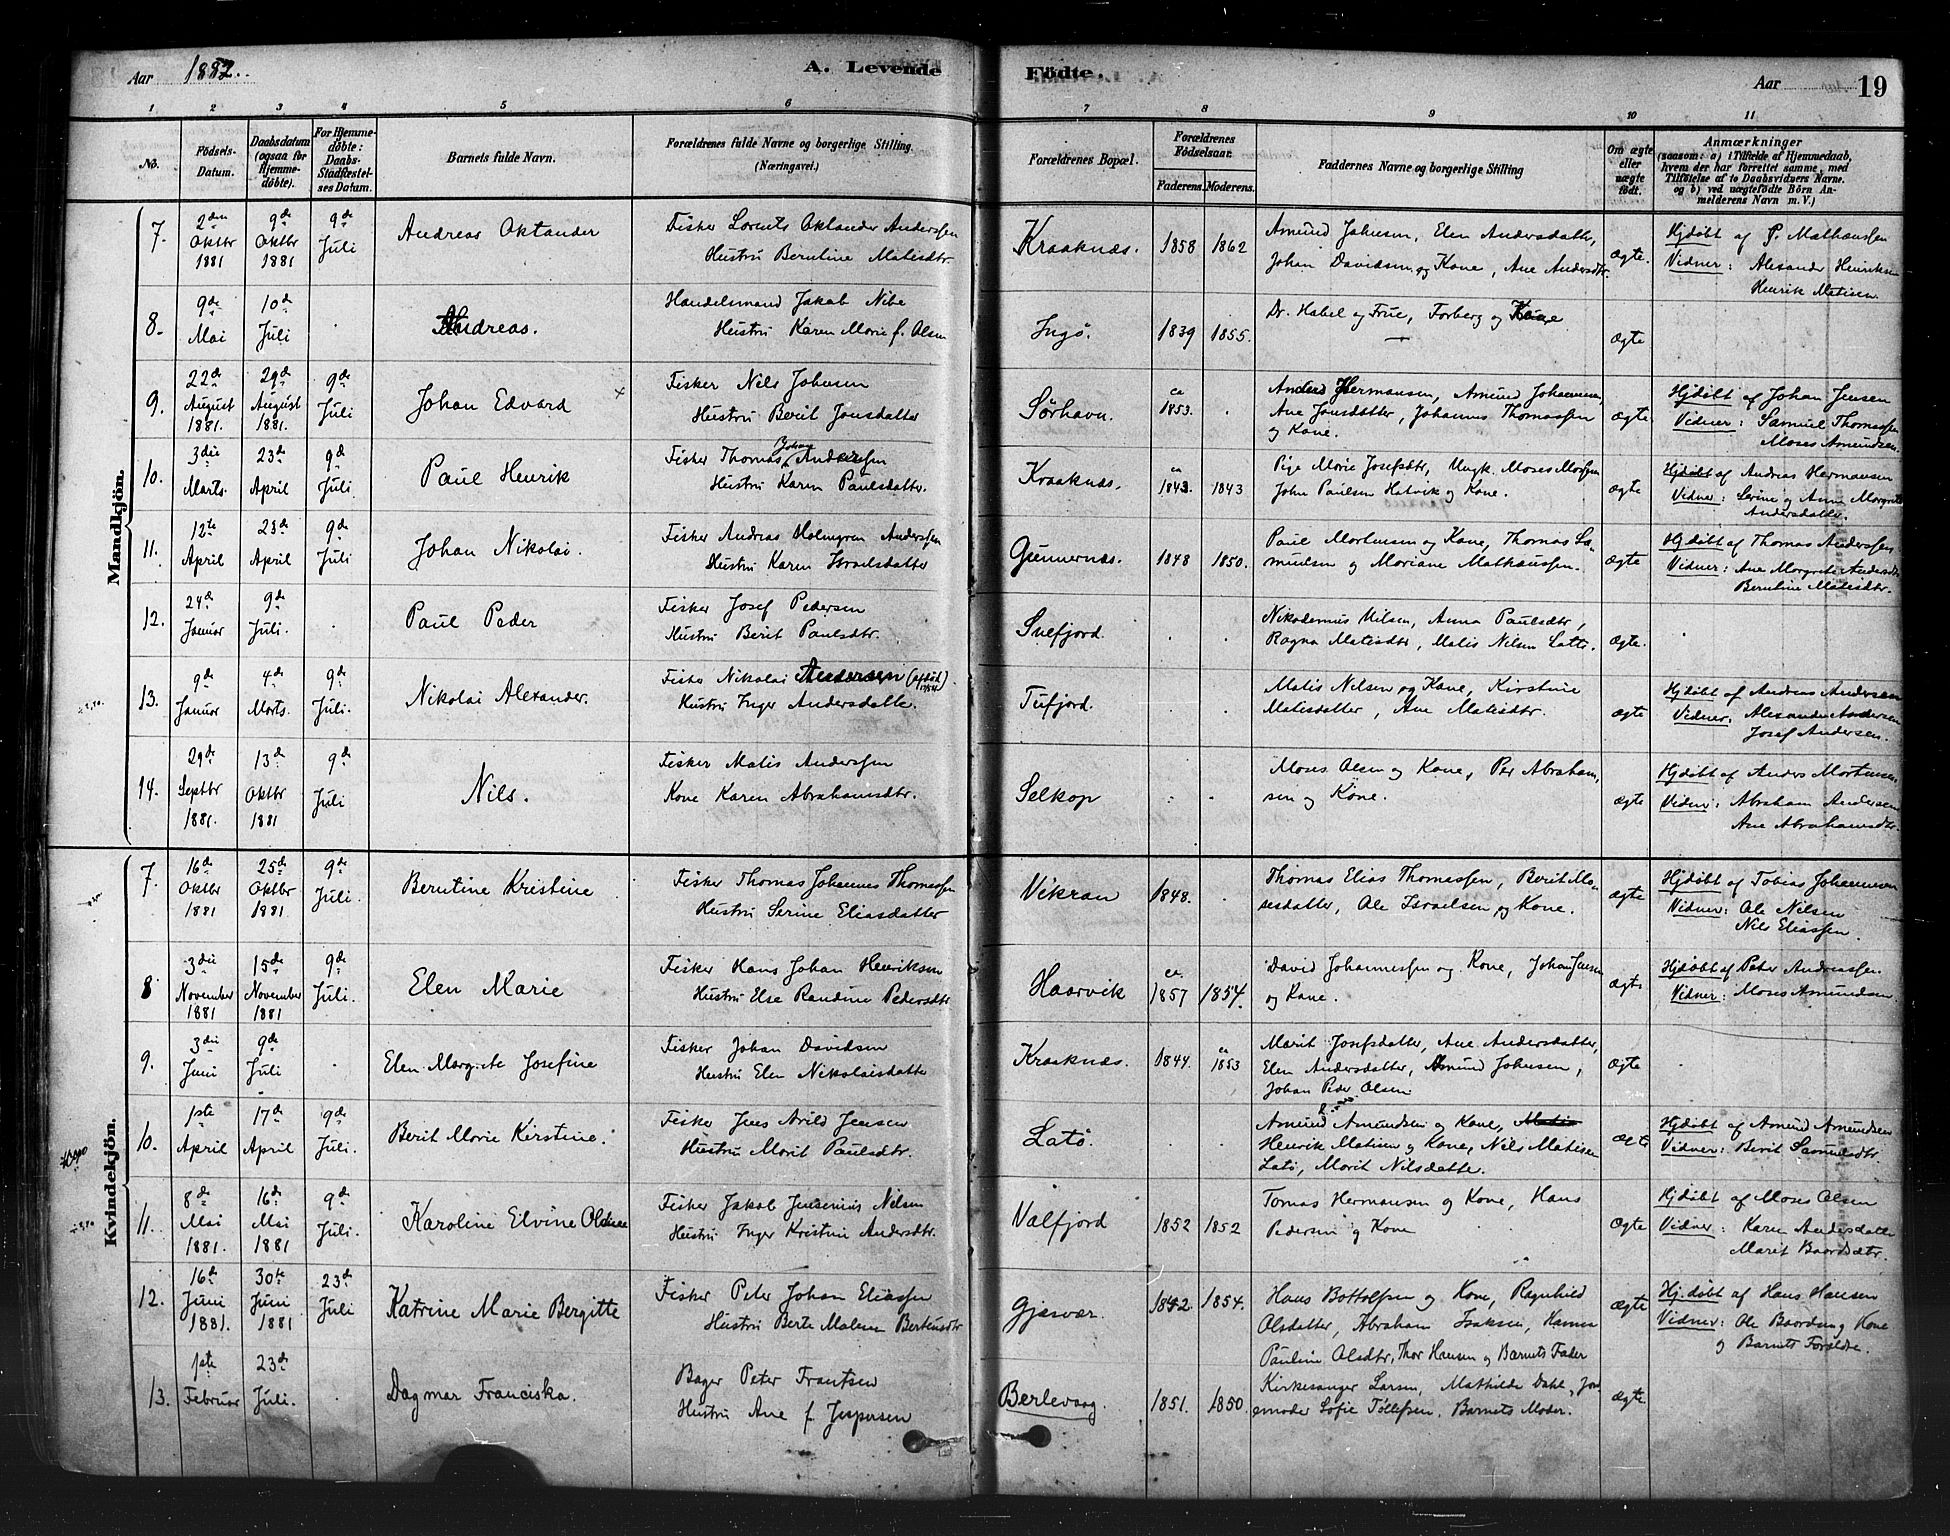 Aar 1882. A. Levende Fødte. Aar 19
1 2 3 4 5 6 7 8 9 10 11
No.
Fødsels-Datum.
Daabsdatum (ogsaa for Hjemmedøbte).
For Hjemmedøbte: Daabs-Stadfæstelses Datum.
Barnets fulde Navn.
Forældrenes fulde Navne og borgerlige Stilling. (Næringsvei.)
Forældrenes Bopæl.
Forældrenes Fødselsaar.
Faderens. Moderens.
Faddernes Navne og borgerlige Stilling
Om ægte eller uægte født.
Anmærkninger
(saasom: a) i Tilfælde af Hjemmedaab, hvem der har forrettet samme, med Tilføielse af to Daabsvidners Navne. og b) ved uægtefødte Børn Anmelderens Navn m. V.)
Mandkjön.
7. 2den Oktbr 1881 9de Oktbr 1881 9de Juli
Andreas Oktander
Fisker Lorents Oklander Anderssen
Hustru Berntine Matisdtr.
Kraaknæs. 1858 1862
Amund Johnsen, Elen Andersdatter,
Johan Davidsen og Kone, Ane Andersdtr.
ægte.
Hjdøbt af P. Mathæussen
Vidner: Alexander Henriksen
Henrik Matisen.
8. 9de Mai 10de Juli .
Andreas.
Handelsmand Jakob Nibe
Hustru Karen Marie f. Olsen
Ingø. 1839 1855.
Dr. Habel og Frue, Forberg og Kone
ægte
9. 22de August 1881. 29de August 1881. 9de Juli
Johan Edvard x
Fisker Nils Johnsen
Hustru Berit Jonsdatter
Sørhavn. ca 1853. .
Anders Hermansen, Amund Johannesen,
Ane Jonsdatter, Johannes Thomassen
og Kone.
ægte
Hjdøbt af Johan Jensen
Vidner: Samuel Thomassen
Moses Amundsen
10. 3die Marts. 23de April 9de Juli.
Paul Henrik
Fisker Thomas Johan Anderssen
Hustru Karen Paulsdatter.
Kraaknæs. ca 1843. 1843
Pige Marie Josefsdtr, Ungk. Moses
John Paulsen Hatvik og Kone.
ægte
Hjdøbt af Andreas Hermansen
Vidner: Serine og Anne Margrete
Andersdatter.
11. 12te April 23de April 9de Juli
Johan Nikolai.
Fisker Andreas Holmgren Anderssen
Hustru Karen Israelsdatter
Gunnernæs. 1848 1850.
Paul Mortensen og Kone, Thomas Sa-
muelsen og Mariane Mathæussen.
ægte
Hjdøbt af Thomas Anderssen
Vidner: Ane Margrete Andersdtr
Berntine Matisdtr.
12. 24de Januar 9de Juli. .
Paul Peder
Fisker Josef Pedersen
Hustru Berit Paulsdtr.
Snefjord. . .
Nikodemus Nilsen, Anna Paulsdtr,
Ragna Matisdtr, Matis Nilsen Latø.
ægte.
13. 9de Januar 4de Marts. 9de Juli.
Nikolai Alexander.
Fisker Nikolai Andersen (afdød).
Hustru Inger Andersdatte.
Tufjord. . .
Matis Nilsen og Kone, Kirstine
Matisdatter, Ane Matisdtr.
ægte
Hjdøbt af Andreas Andersen
Vidner, Alexander Andersen
Josef Andersen.
14. 29de Septbr 1881. 13de Oktbr 1881 9de Juli
Nils.
Fisker Matis Anderssen
Kone Karen Abrahamsdtr.
Selkop . .
Moses Olsen og Kone, Per Abraham,
sen og Kone.
ægte
Hjdøbt af Anders Mortensen
Vidner: Abraham Andersen
Ane Abrahamsdtr.
Kvindekjön.
7. 16de Oktbr 1881 25de Oktbr 1881 9de Juli.
Berntine Kristine
Fisker Thomas Johannes Thomassen
Hustru Serine Eliasdatter
Vikran 1848. .
Thomas Elias Thomassen, Berit Mo-
sesdatter, Ole Israelsen og Kone.
ægte
Hjdøbt af Tobias Johannesen
Vidner: Ole Nilsen
Nils Eliassen.
8 3die November 1881 15de November 1881 9de Juli.
Elen Marie
Fisker Hans Johan Henriksen
Hustru Else Randine Pedersdtr
Haarvik ca. 1857 1854.
David Johannessen og Kone, Johan Jensen
og Kone.
ægte
Hjdøbt af Peter Andreassen.
Vidner: Moses Amundsen
9. 3die Juni 9de Juli .
Elen Margrete Josefine
Fisker Johan Davidsen
Hustru Elen Nikolaisdatte
Kraaknæs. 1844 ca 1853
Marit Josefsdatter, Ane Andersdatter,
Elen Andersdatter, Amund Johnsen,
Johan Peder Olsen
ægte
10. 1ste April 17de April 9de Juli.
Berit Marie Kirstine.
Fisker Jens Arild Jensen
Hustru Marit Paulsdtr.
Latø. . .
Amund Amundsen og Kone, Matis
Henrik Matisen og Kone, Nils Matisen
Latø, Marit Nilsdatte.
ægte
Hjdøbt af Amund Amundsen
Vidner: Berit Samuelsdtr
11. 8de Mai 1881. 16de Mai 1881 9de Juli.
Karoline Elvine
Fisker Jakob Jensenius Nilsen
Hustru Inger Kristine Andersdtr.
Valfjord 1852 1852
Tomas Hermansen og Kone, Hans
Pedersen og Kone
ægte
Hjdøbt af Moses Olsen
Vidner: Karen Andersdatter
Marit Baardsdtr.
12. 16de Juni 1881. 30te Juni 1881 23de Juli
Katrine Marie Bergitte
Fisker Peter Johan Eliassen
Hustru Berte Malene
Gjæsvær. 1842. 1854.
Hans Bottolfsen og Kone, Ragnhild
Olsdatter, Abraham Isaksen, Hanna
Pauline Olsdtr, Thor Hansen og Barnets Fader
ægte
Hj.døbt af Hans Hansen
Vidner: Ole Baardsen og Kone
og Barnets Forældre.
13. 1ste Februar 23de Juli. .
Dagmar Franciska.
Bager Peter Frantsen
Hustru Ane f. Jespersen
Berlevaag. 1851. 1850.
Kirkesanger Larsen, Mathilde Dahl, Jor-
demoder Sofie Tollefsen. Barnets Moder.
ægte